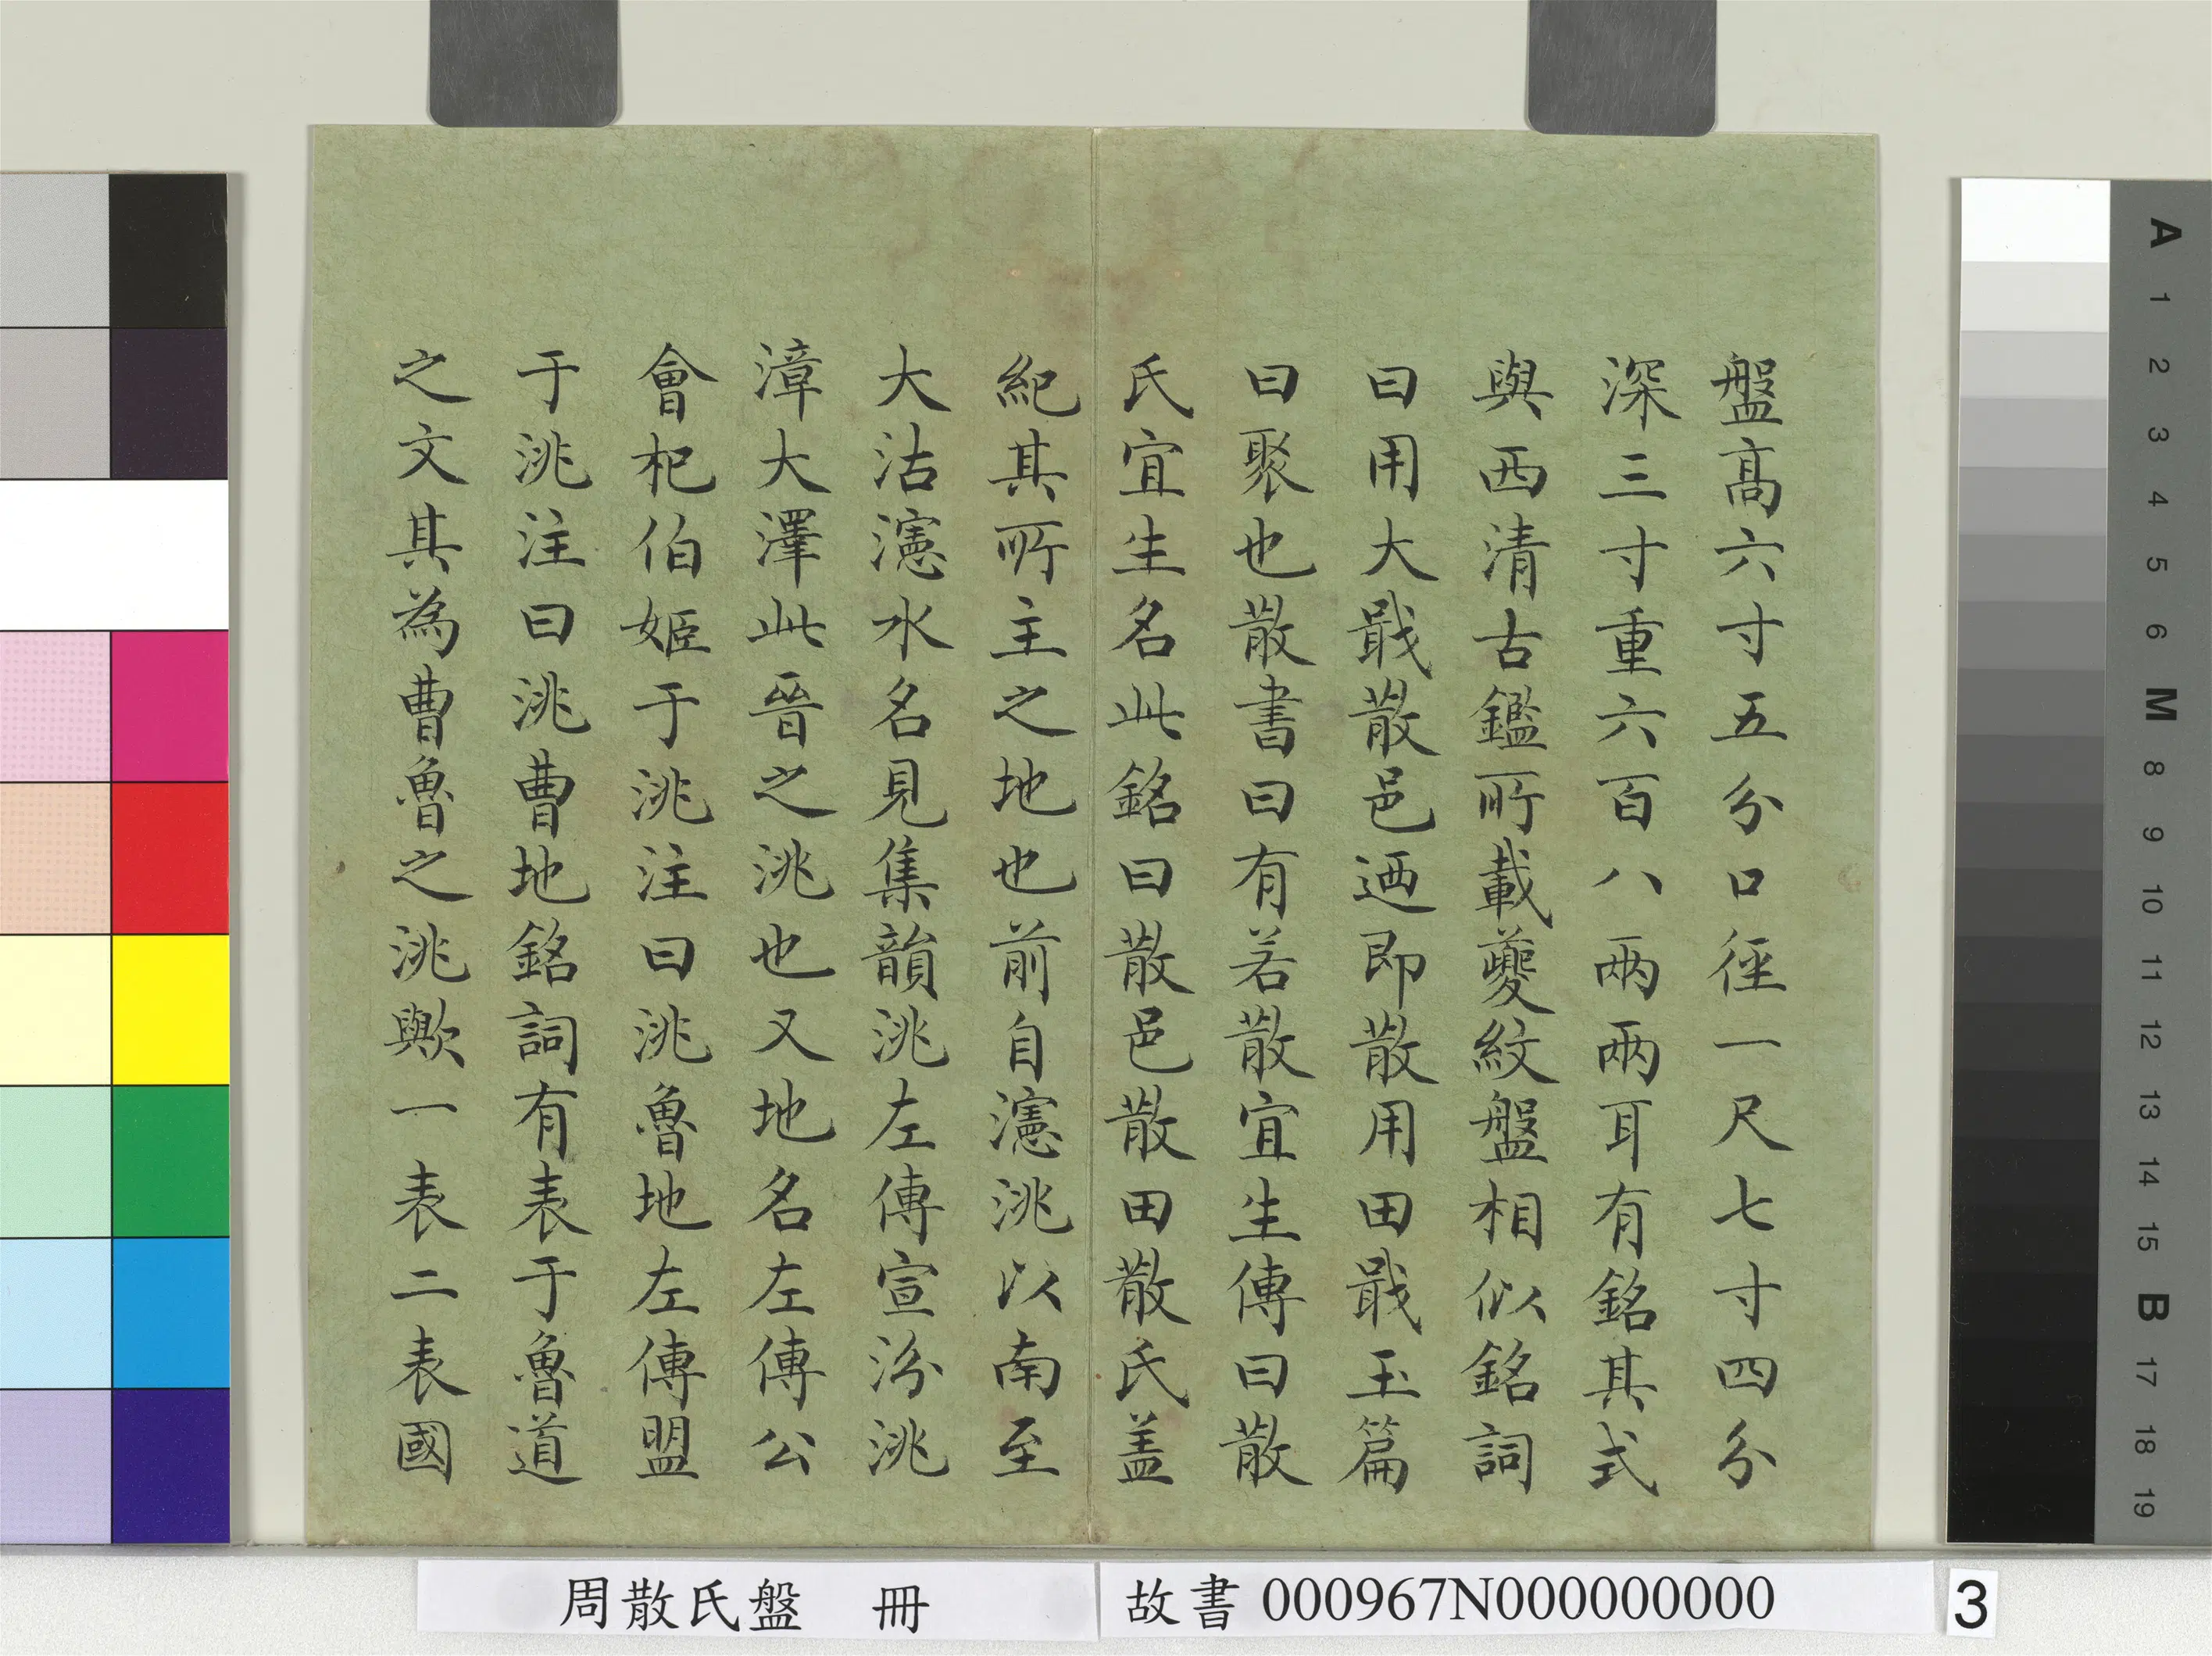 盤高六寸五分口徑一尺七寸四分
深三寸重六百八兩兩耳有銘其式
與西清古鑑所載夔紋盤相似銘詞
曰用大戢散邑迺即散用田戢玉篇
曰聚也散書曰有若散宜生傳曰散
氏宜生名此銘曰散邑散田散氏盖
紀其所主之地也前自瀗洮以南至
大沽瀗水名見集韻洮左傳宣汾洮
漳大澤此晉之洮也又地名左傳公
會杞伯姬于洮注曰洮魯地左傳盟
于洮注曰洮曹地銘詞有表于魯道
之文其為曹魯之洮歟一表二表國
周散氏盤 冊
故書 000967N000000000
3
A 1 2 3 4 5 6 M 8 9 10 11 12 13 14 15 B 17 18 19